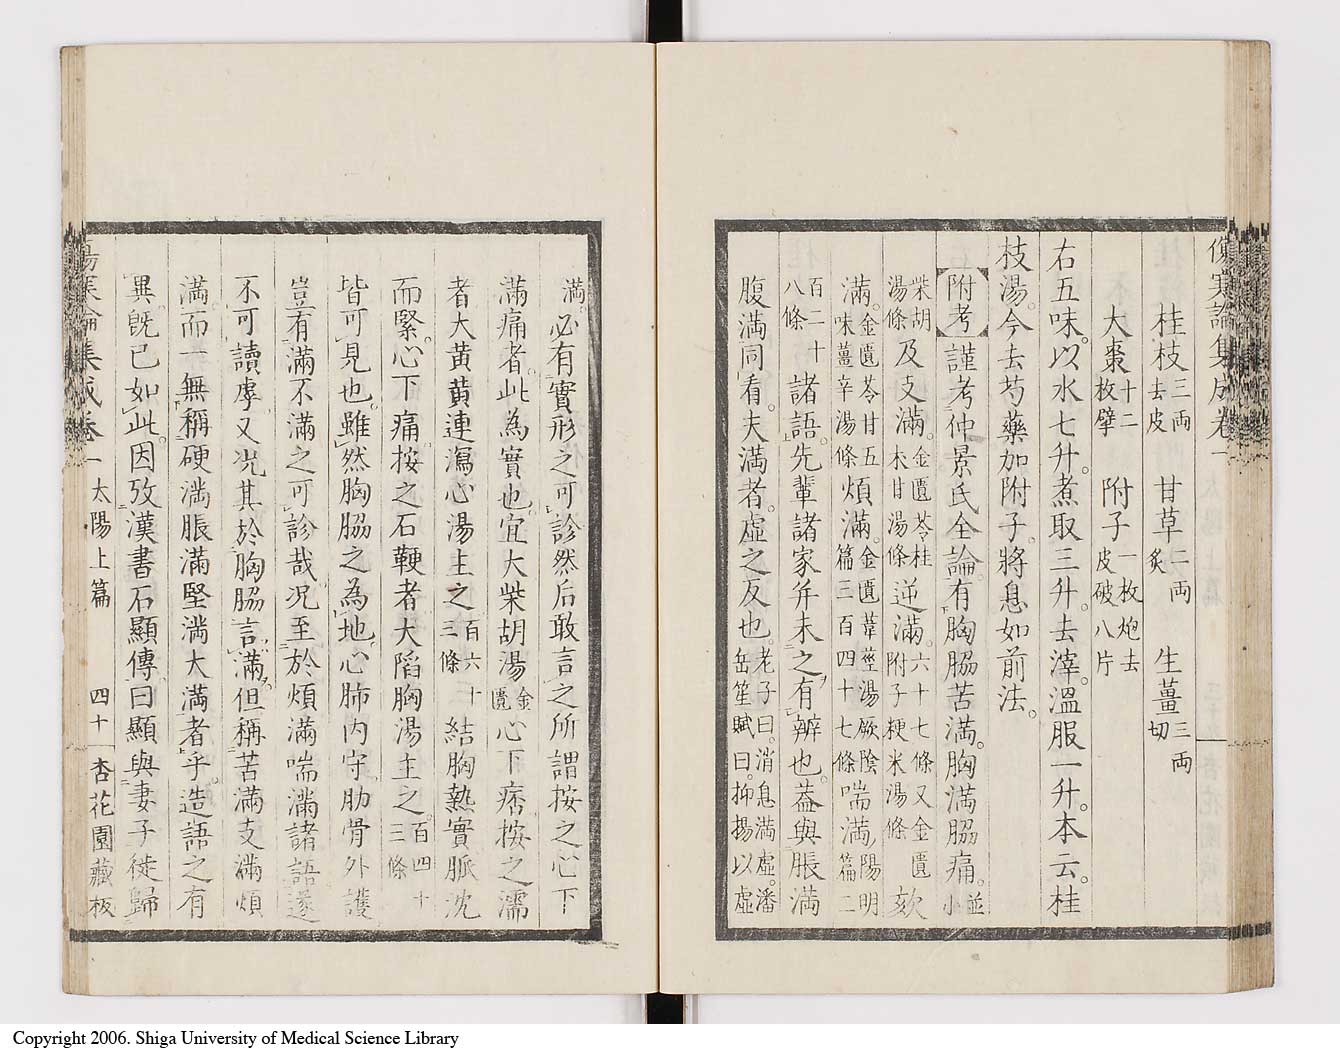 傷寒論集成卷一
桂枝三両去皮 甘草二両炙 生薑三両切
大棗十二枚擘 附子一枚炮去皮破八片
右五味。以水七升。煮取三升。去滓。溫服一升。本云。桂
枝湯。今去芍藥加附子。將息如前法。
附考 謹考仲景氏全論。有胸脇苦満。胸満脇痛。並小
柴胡湯條及支満。金匱苓桂朮甘湯條逆満。六十七條又金匱附子粳米湯條欬
満。金匱苓甘五味薑辛湯條煩満。金匱葦莖湯厥陰篇三百四十七條喘満陽明篇二
百二十八條諸語。先輩諸家并未之有辨也。葢與脹満
腹満同看。夫満者。虛之反也。老子曰。消息満虛。潘岳笙賦曰。抑揚以虛
満。必有實形之可診。然后敢言之。所謂按之心下
滿痛者。此為實也。宜大柴胡湯金匱心下痞。按之濡
者大黃黃連瀉心湯主之百六十三條結胸熱實。脈沈
而緊。心下痛。按之石鞕者大陷胸湯主之。百四十三條
皆可見也。雖然胸脇之為地。心肺内守。肋骨外護
豈有滿不滿之可診哉。況至於煩滿喘滿諸語。遂
不可讀虖。又況其於胸脇言滿。但稱苦滿支滿煩
滿。而一無稱硬満脹滿堅満大満者乎。造語之有
異。既已如此。因攷漢書石顯傳曰顯與妻子徙歸
傷寒論集成卷一 太陽上篇 四十 杏花園藏板